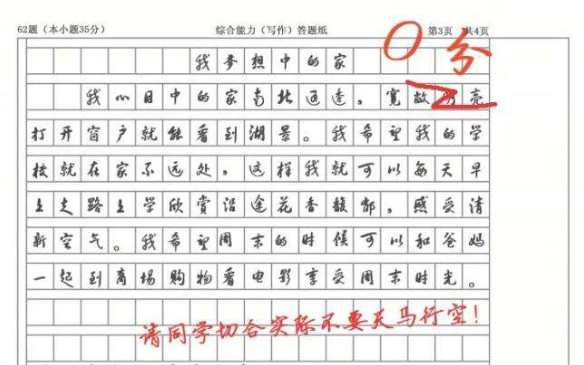 62题（本小题35分） 综合能力（写作）答题纸 第3页 共4页
0分
我梦想中的家
我心目中的家南北通透，宽敞明亮
打开窗户就能看到湖景。我希望我的学
校就在家不远处，这样我就可以每天早
上走路上学欣赏沿途花香馥郁，感受清
新空气。我希望周末的时候可以和爸妈
一起到商场购物看电影享受周末时光。
请同学切合实际不要天马行空！